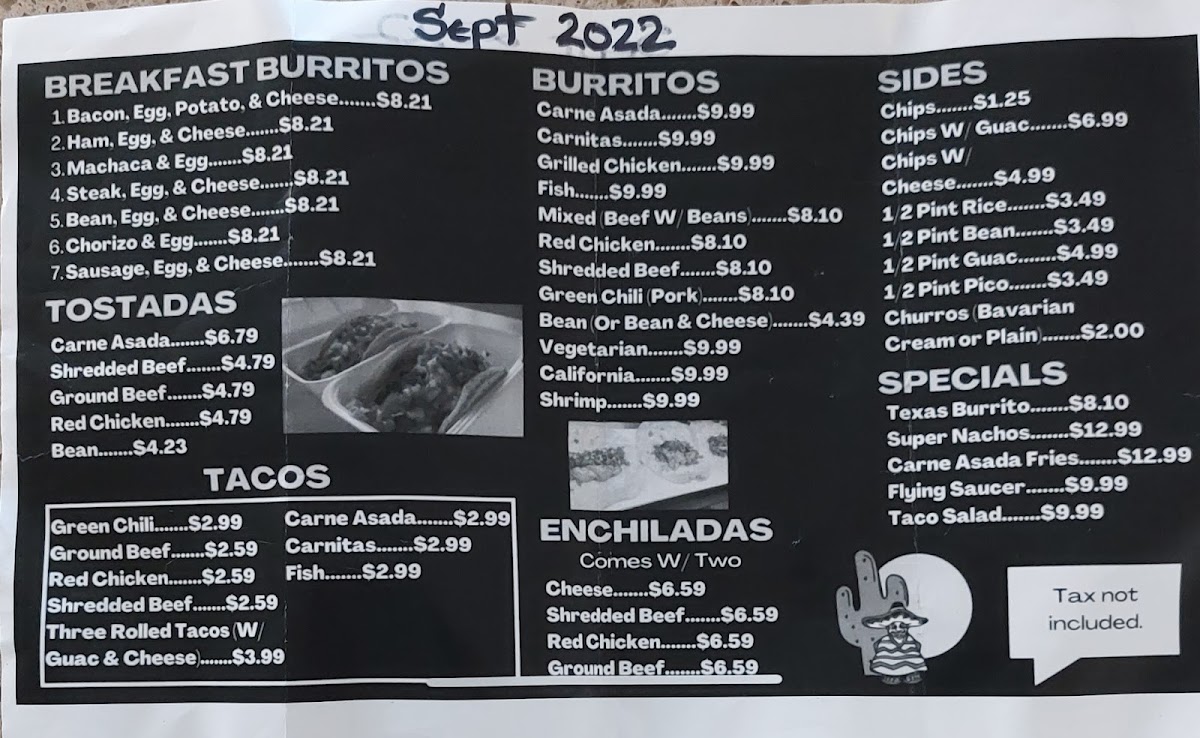 Sept 2022
BREAKFAST BURRITOS
1. Bacon, Egg, Potato, & Cheese.......$8.21
2. Ham, Egg, & Cheese.......$8.21
3. Machaca & Egg.......$8.21
4. Steak, Egg, & Cheese.......$8.21
5. Bean, Egg, & Cheese.......$8.21
6. Chorizo & Egg.......$8.21
7. Sausage, Egg, & Cheese.......$8.21
TOSTADAS
Carne Asada.......$6.79
Shredded Beef.......$4.79
Ground Beef.......$4.79
Red Chicken.......$4.79
Bean.......$4.23
TACOS
Green Chili.......$2.99
Ground Beef.......$2.59
Red Chicken.......$2.59
Shredded Beef.......$2.59
Three Rolled Tacos (W/
Guac & Cheese).......$3.99
Carne Asada.......$2.99
Carnitas.......$2.99
Fish.......$2.99
BURRITOS
Carne Asada.......$9.99
Carnitas.......$9.99
Grilled Chicken.......$9.99
Fish.......$9.99
Mixed (Beef W/ Beans).......$8.10
Red Chicken.......$8.10
Shredded Beef.......$8.10
Green Chili (Pork).......$8.10
Bean (Or Bean & Cheese).......$4.39
Vegetarian.......$9.99
California.......$9.99
Shrimp.......$9.99
ENCHILADAS
Comes W/ Two
Cheese.......$6.59
Shredded Beef.......$6.59
Red Chicken.......$6.59
Ground Beef.......$6.59
SIDES
Chips.......$1.25
Chips W/ Guac.......$6.99
Chips W/
Cheese.......$4.99
1/2 Pint Rice.......$3.49
1/2 Pint Bean.......$3.49
1/2 Pint Guac.......$4.99
1/2 Pint Pico.......$3.49
Churros (Bavarian
Cream or Plain).......$2.00
SPECIALS
Texas Burrito.......$8.10
Super Nachos.......$12.99
Carne Asada Fries.......$12.99
Flying Saucer.......$9.99
Taco Salad.......$9.99
Tax not
included.